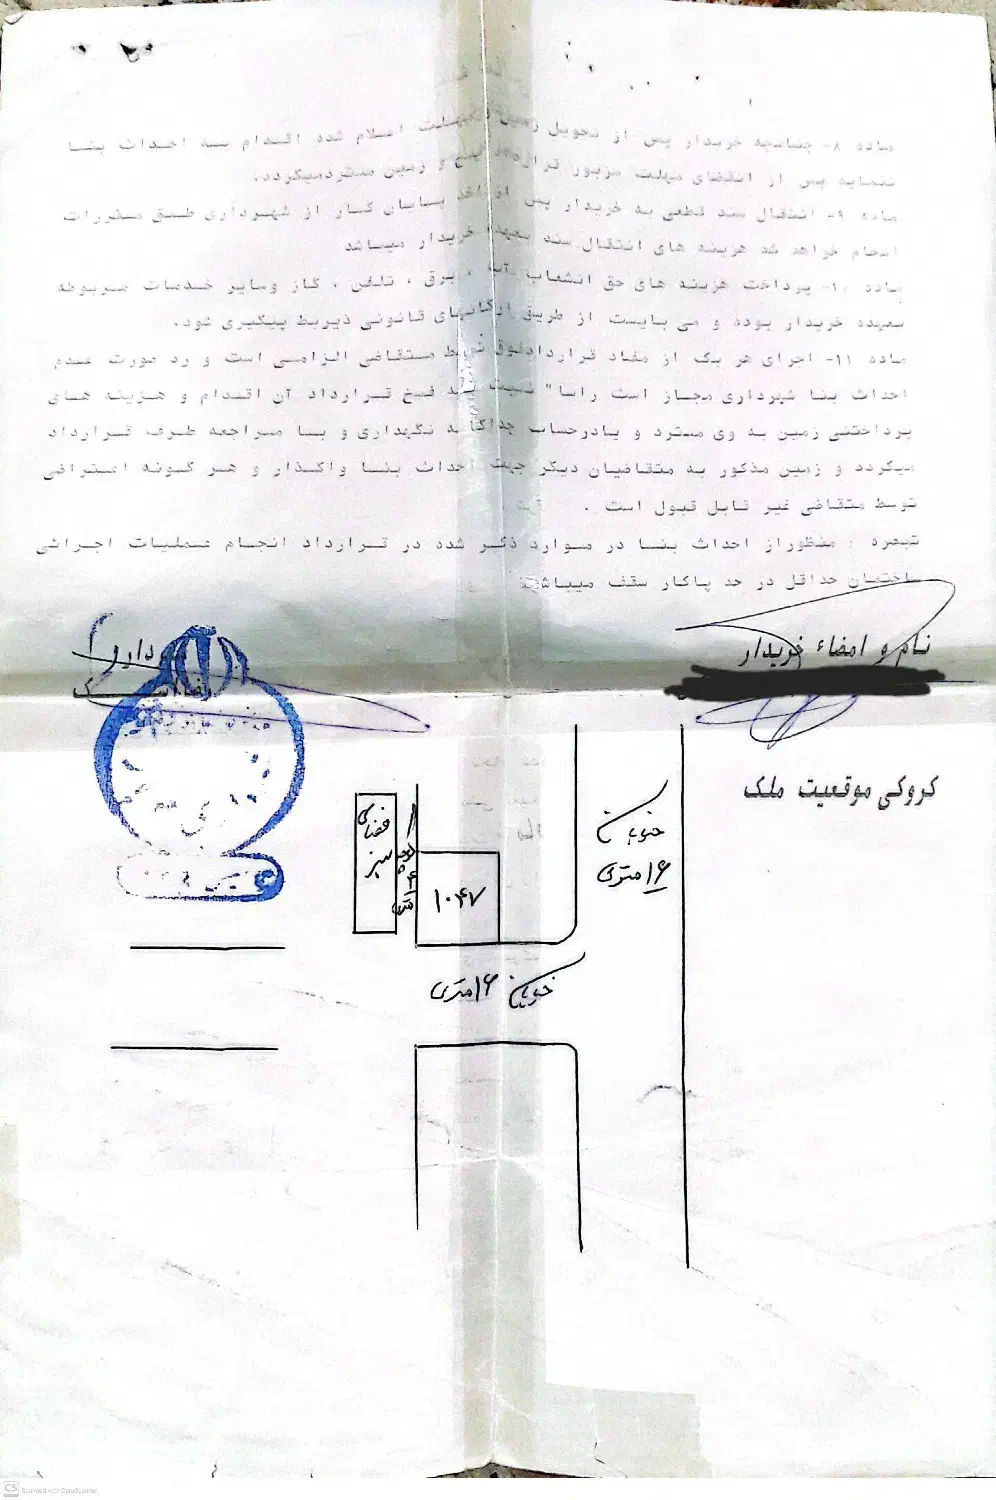 ماده ۸- چنانچه خریدار پس از تحویل زمین و مهلت اعلام شده اقدام به احداث بنا
ننماید پس از انقضای مهلت مزبور قرارداد فسخ و زمین مسترد میگردد.
ماده ۹- انتقال سند قطعی به خریدار پس از اخذ پایان کار از شهرداری طبق مقررات
انجام خواهد شد هزینه های انتقال سند بعهده خریدار میباشد
ماده ۱۰- پرداخت هزینه های حق انشعاب آب ، برق ، تلفن ، گاز وسایر خدمات مربوطه
بعهده خریدار بوده و می بایست از طریق ارگانهای قانونی ذیربط پیگیری شود.
ماده ۱۱- اجرای هر یک از مفاد قراردادفوق توسط متقاضی الزامی است و رد صورت عدم
احداث بنا شهرداری مجاز است راسا" نسبت به فسخ قرارداد آن اقدام و هزینه های
پرداختی زمین به وی مسترد و یادرحساب جداگانه نگهداری و با مراجعه طرف قرارداد
میگردد و زمین مذکور به متقاضیان دیگر جهت احداث بنا واگذار و هر گونه اعتراضی
توسط متقاضی غیر قابل قبول است .
تبصره : منظوراز احداث بنا در موارد ذکر شده در قرارداد انجام عملیات اجرائی
ساختمان حداقل در حد پاکار سقف میباشد
نام و امضاء خریدار
کروکی موقعیت ملک
خیابان
۱۶ متری
فضای
سبز
کوچه
متری
۱۰۴۷
خیابان ۱۶ متری
CS Scanned with CamScanner